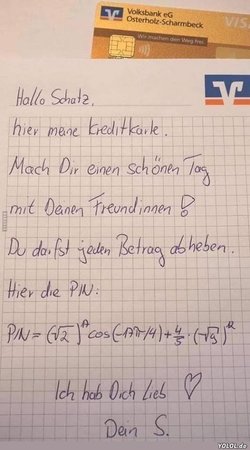 Volksbank eG
Osterholz-Scharmbeck
VISA
Wir machen den Weg frei.
Hallo Schatz,
hier meine Kreditkarte.
Mach Dir einen schönen Tag
mit Deinen Freundinnen!
Du darfst jeden Betrag abheben.
Hier die PIN:
PIN =
Ich hab Dich Lieb ♡
Dein S.
YOLOL.de